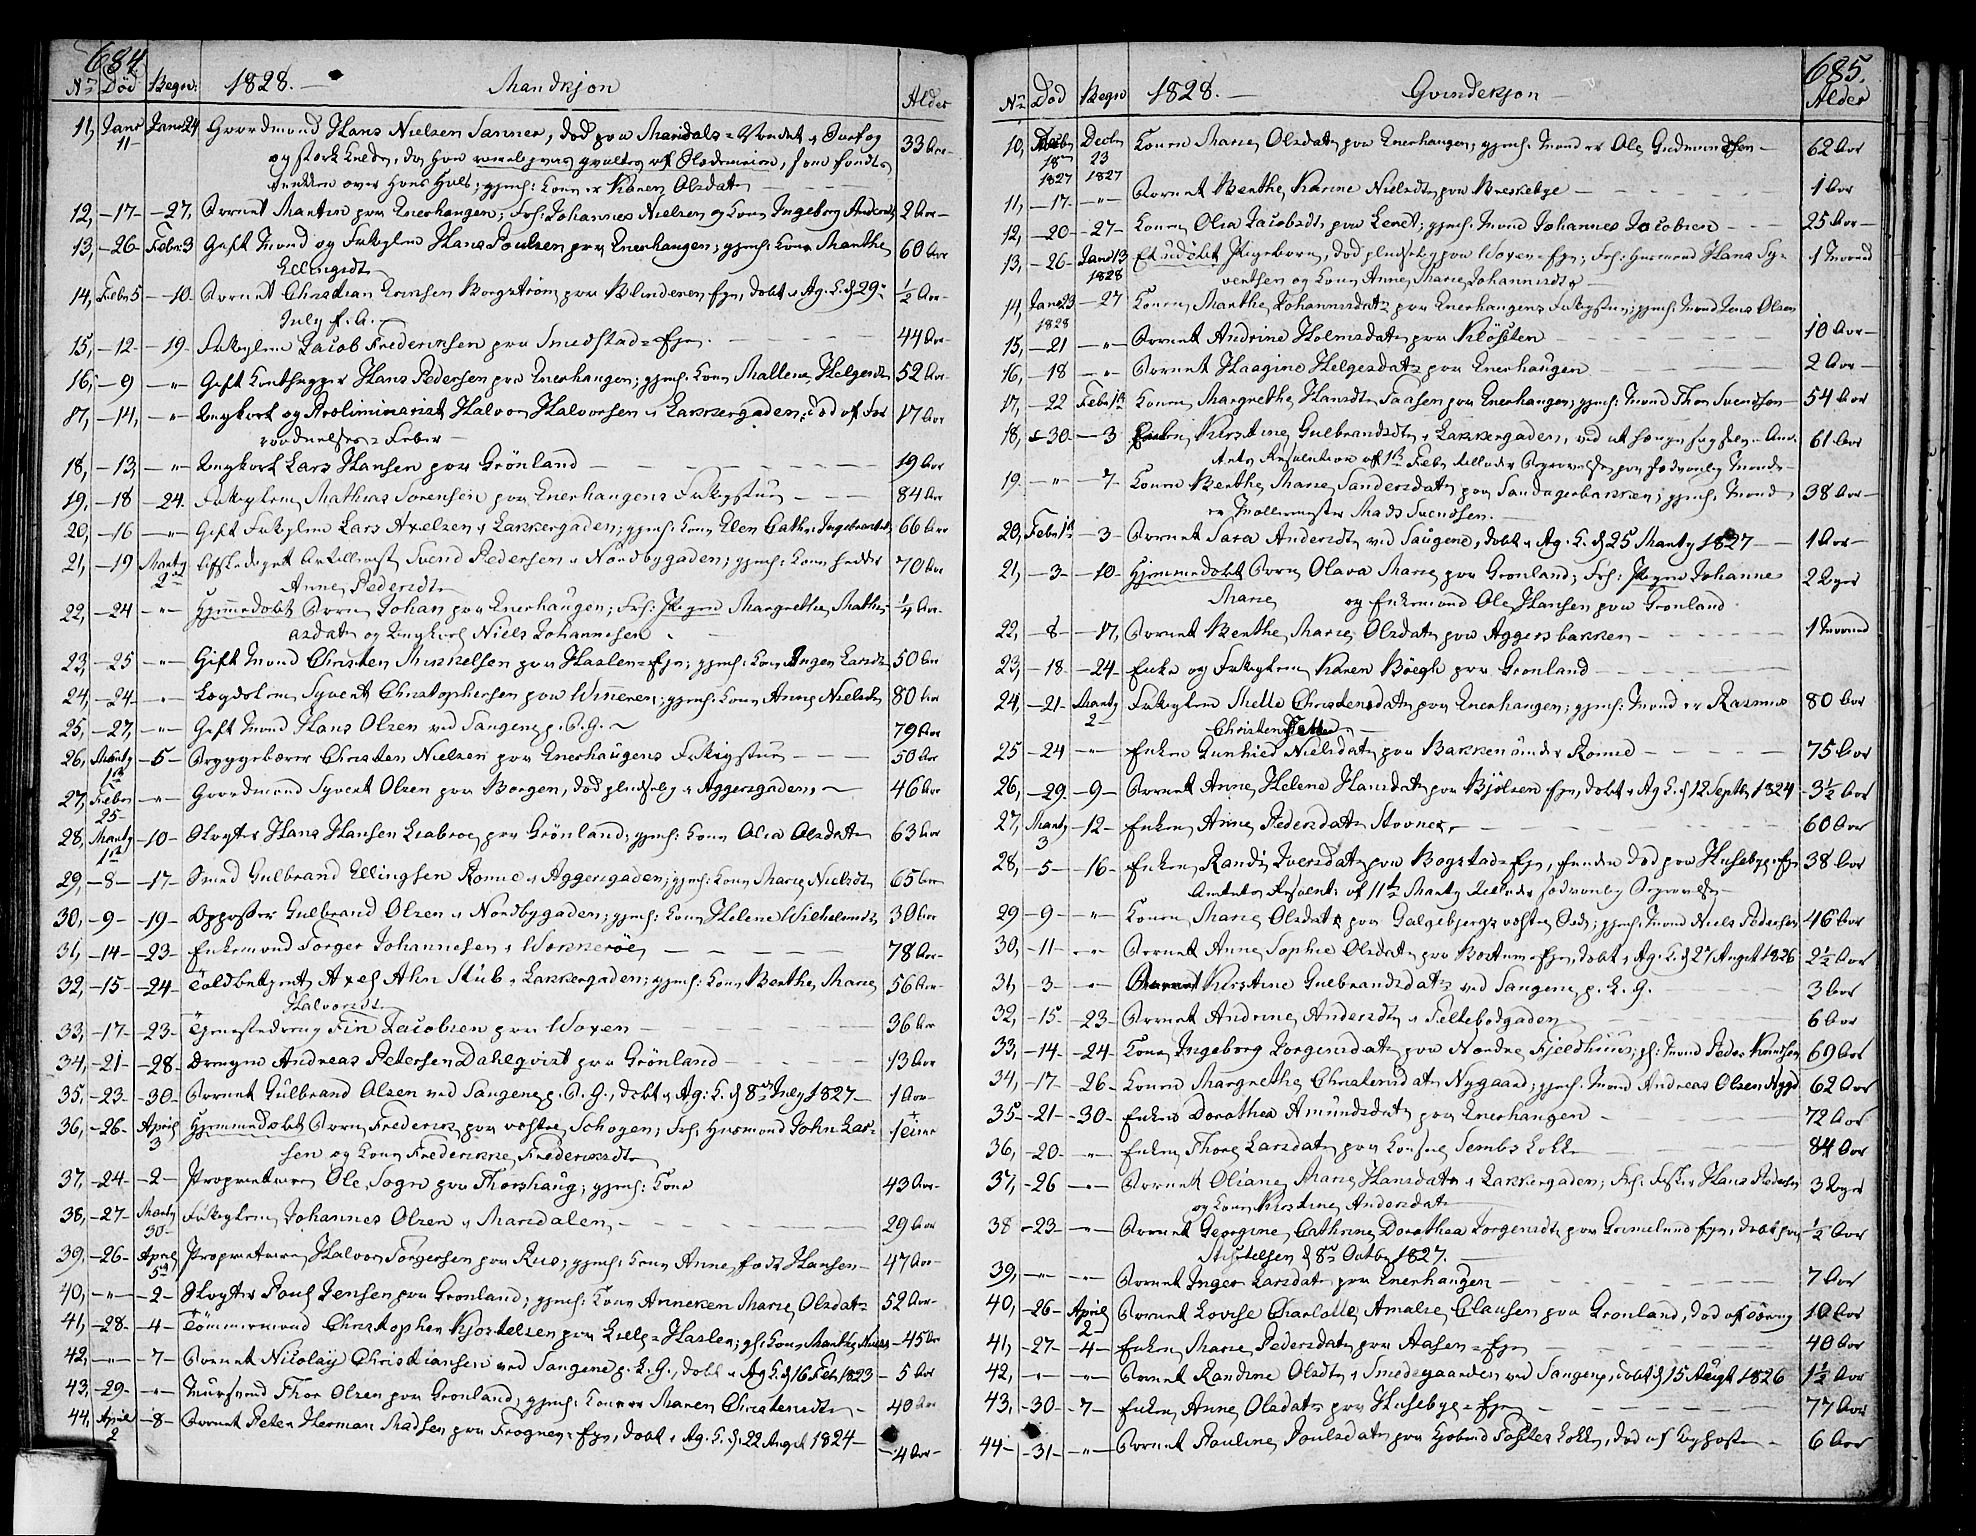 684
No Död Begr. 1828. — Mandkjøn Alder
11, Janr 11 Janr 24 Gaardmand Hans Nielsen Sanner, død paa Maridals-Vandet 33 Aar
er Karen Olsdatr
12, -17- -27, Barnet Martin paa Enerhaugen; Frh: Johannes Nielsen og Kone Ingeborg Andersdtr 2 Aar
13, -26- Febr 3 Gift Mand og Fattiglem Hans Poulsen paa Enerhaugen; gjenl: Kone Marthe 60 Aar
Ellingsdtr
14, Febr 5 -10- Barnet Christian Borgstrøm paa Blinderen Eje, døbt i Ag. K. d. 29 ½ Aar
July f. A.
15, -12- -19- Fattiglem Jacob Frederiksen paa Smedstad-Eje 44 Aar
16, -9 -"- Gift Hans Pedersen paa Enerhaugen; gjenl: Kone Mallene Helgesdtr 52 Aar
17, -14, " Ungkarl og Præliminarist Halvor Halvorsen i Lakkergaden, død af For
raadnelses-Feber 17 Aar
18, -13, -"- Ungkarl Lars Hansen paa Grönland 19 Aar
19, -18 -24. Fattiglem Mathias Sørensen paa Enerhaugens Fattigstue 84 Aar
20, -16 -"- Gift Fattiglem Lars Axelsen i Lakkergaden; gjenl: Kone Elen Cathr. 66 Aar
21, -19 Marty 2 Afskediget Artillerist Svend Pedersen i Nordbygaden; gjenl: Kone heder 70 Aar
Anne Pedersdtr
22, -24 -"- Hjemmedøbt Barn Johan paa Enerhaugen; Frh: Pigen Margrethe Mathi- ¼ Aar
asdatr og Ungkarl Niels Johannesen
23, -25 -"- Gift Mand Christen Mikkelsen paa Haslen-Eje; gjenl: Kone Inger Larsdtr 50 Aar
24, -24- -"- Lægdslem Syvert Christophersen paa Winneren; gjenl: Kone Anne Nielsdtr 80 Aar
25, -27, -"- Gift Mand Hans Olsen ved Saugene p. B. G. 79 Aar
26, Marty 1st -5- Bryggebærer Christen Nielsen paa Enerhaugens Fattigstue 50 Aar
27, Febr 25 -"- Gaardmand Syvert Olsen paa Borgen, død pludselig i Aggersgaden 46 Aar
28, Marty 1st -10- Slagter Hans Hansen Liabroe paa Grönland; gjenl: Kone Olia Olsdatr 63 Aar
29, -8- -17- Smed Gulbrand Ellingsen Rome i Aggersgaden; gjenl: Kone Marie Nielsdtr 65 Aar
30, -9- -19- Opposter Gulbrand Olsen i Nordbygaden; gjenl: Kone Helene Wilhelmsdtr 30 Aar
31, -14- -23- Enkemand Torger Johannesen i Wækkerøe 78 Aar
32, -15- -24- Toldbetjent Axel Ahn Stub i Lakkergaden; gjenl: Kone Berthe Marie 56 Aar
Halvorsdtr
33, -17- -23- Tjenestedreng Fin Jacobsen paa Woxen 36 Aar
34, -21- -28- Drengen Andreas Petersen Dahlqvist paa Grönland 13 Aar
35, -23- -30- Barnet Gulbrand Olsen ved Saugene p. B. G., døbt i Ag: K. d. 8 July 1827 1 Aar
36, -26- April 3 Hjemmedøbt Barn Frederik paa vestre Schøgen; Frh: Husmand John Lar-
sen og Kone Frederikke Frederiksdtr
37, -24- -2- Proprietaire Ole Sogn paa Thorshaug; gjenl: Kone 43 Aar
38, -27- Marty 30 Fattiglem Johannes Olsen i Maridalen 29 Aar
39, -26- April 5 Proprietaire Halvor Torgersen paa Rus; gjenl: Kone Anne født Hansen 47 Aar
40, -"- -2- Slagter Poul Jensen paa Grønland; gjenl: Kone Anneken Marie Olsdatr 52 Aar
41, -28- -4- Tømmermand Christopher Kjøstelsen paa Lille-Haslen; gl: Kone Marthe 45 Aar
42, -"- -7- Barnet Nicolay Christiansen ved Saugene p. L. G., døbt i Ag K. d. 16 Feb. 1823 5 Aar
43, -29- -"- Muursvend Thor Olsen paa Grønland; gjenl: Kone er Maren Christensdtr 40 Aar
44, April 2 -8- Barnet Peter Herman Madsen paa Frogner-Eje, døbt i Ag. K. d. 22 Augst 1824 4 Aar
685.
No Død Begr 1828. — Qvindekjøn Alder
10, Decbr 18 1827 Decbr 23 1827 Konen Marie Olsdatr paa Enerhaugen; gjenl: Mand er Ole Gudmundsen 62 Aar
11, -17- -"- Barnet Berthe Karine Nielsdtr paa Breskebye 1 Aar
12, -20- -27- Konen Olia Jacobsdtr paa Leret; gjenl: Mand Johannes Jacobsen 25 Aar
13, -26- Janr 13 1828 Et udøbt Pigebarn, død pludselig paa Woxen-Eje; Frh: Husmand Hans Sy- 1 Maaned
vertsen og Kone Anne Marie Johannesdtr
14, Janr 23 1828 -27 Konen Marthe Johannesdatr paa Enerhaugens Fattigstue; gjenl: Mand Jens Olsen
15, -21 -"- Barnet Andrine Holmsdatr paa Kløften 10 Aar
16, -18 -"- Barnet Haagine Helgesdatr paa Enerhaugen 2 Aar
17, -22 Febr 1st Konen Margrethe Hansdtr Taasen paa Enerhaugen; gjenl: Mand Thor Svendsen 54 Aar
18, -30- -3 Enken Kirstine Gulbrandsdtr i Lakkergaden, 61 Aar
Resolution af 1st Febr tilladt Begravelse paa sædvanlig Maade
19. -"- -7- Konen Berthe Marie Sandersdatr paa Sandagerbakken; gjenl: Mand 38 Aar
er Møllermester Mads Svendsen.
20, Febr 1st -3- Barnet Sara Andersdtr ved Saugene, døbt i Ag. K. d. 25 Marty 1827 1 Aar
21, -3- -10- Hjemmedøbt Barn Olava Marie paa Grønland; Frh: Pigen Johanne 2 Uger
Marie og Enkemand Ole Hansen paa Grønland
22, -8- -17, Barnet Berthe Marie Olsdatr paa Aggersbakken 1 Maaned
23, -18- -24- Enke og Fattiglem Karen Bøegh paa Grønland
24, -21- Marty 2 Fattiglem Mette Christensdatr paa Enerhaugen; gjenl: Mand er Rasmus 80 Aar
Christen
25 -24 -"- Enken Gunhild Nielsdatr paa Bakken under Romee 75 Aar
26, -29- -9- Barnet Anne Helene Hansdatr paa Bjølsen Eje, døbt i Ag K. d. 12 Septbr 1824 3½ Aar
27, Marty 3 -12- Enken Anne Pedersdatr Stovner 60 Aar
28, -5- -16- Enken Randi Iversdatr paa Bogstad-Eje, funden død paa Husebye-Eje 38 Aar
Amtets Resolut: af 11te Marty tillader sædvanlig Begravelse
29 -9- -"- Konen Marie Olsdatr paa Galgebjergs vestre Side; gjenl: Mand Niels Pedersen 46 Aar
30, -11- -"- Barnet Anne Sophie Olsdatr paa Bortum-Eje, døbt i Ag. K. d. 27 Augst 1826 2½ Aar
31, -3- -"- Barnet Kirstine Gulbrandsdatr ved Saugene p. L. G. 3 Aar
32, -15- -23- Barnet Andrine Andersdtr i Teltebodgaden 6 Aar
33, -14- -24- Kone Ingeborg Jorgensdatr paa Nordre Fjeldhuus; gl: Mand Peder Knudsen 69 Aar
34, -17- -26- Konen Margrethe Christensdatr Nygaard; gjenl: Mand Andreas Olsen Nygd 62 Aar
35 -21- -30- Enken Dorothea Amundsdatr paa Enerhaugen 72 Aar
36, -20- -"- Enken Thore Larsdatr paa Konsul Sembs Løkke 84 Aar
37, -26 -"- Barnet Oliane Marie Hansdatr i Lakkergaden; Frh: Fisker Hans Pedersen 3 Uger
og Kone Kirstine Andersdatr
38 -23- -"- Barnet Georgine Cathrine Dorothea Jorgensdtr paa Grimelund Eje, døbt paa ½ Aar
Stiftelsen d. 8 Octbr 1827.
39, -"- -"- Barnet Inger Larsdatr paa Enerhaugen 7 Aar
40, -26- April 2 Barnet Lovise Charlotte Amalie Clausen paa Grønland, død af 10 Aar
41, -27- -4- Enken Marie Pedersdatr paa Aasen-Eje 40 Aar
42, -"- -"- Barnet Randine Olsdtr i Smedgaarden ved Saugene, døbt d. 15 Augt 1826 1½ Aar
43, -30- -7- Enken Anne Olsdatr paa Husebye-Eje 77 Aar
44- -31- -"- Barnet Pauline Poulsdatr paa Løkke, død af 6 Aar